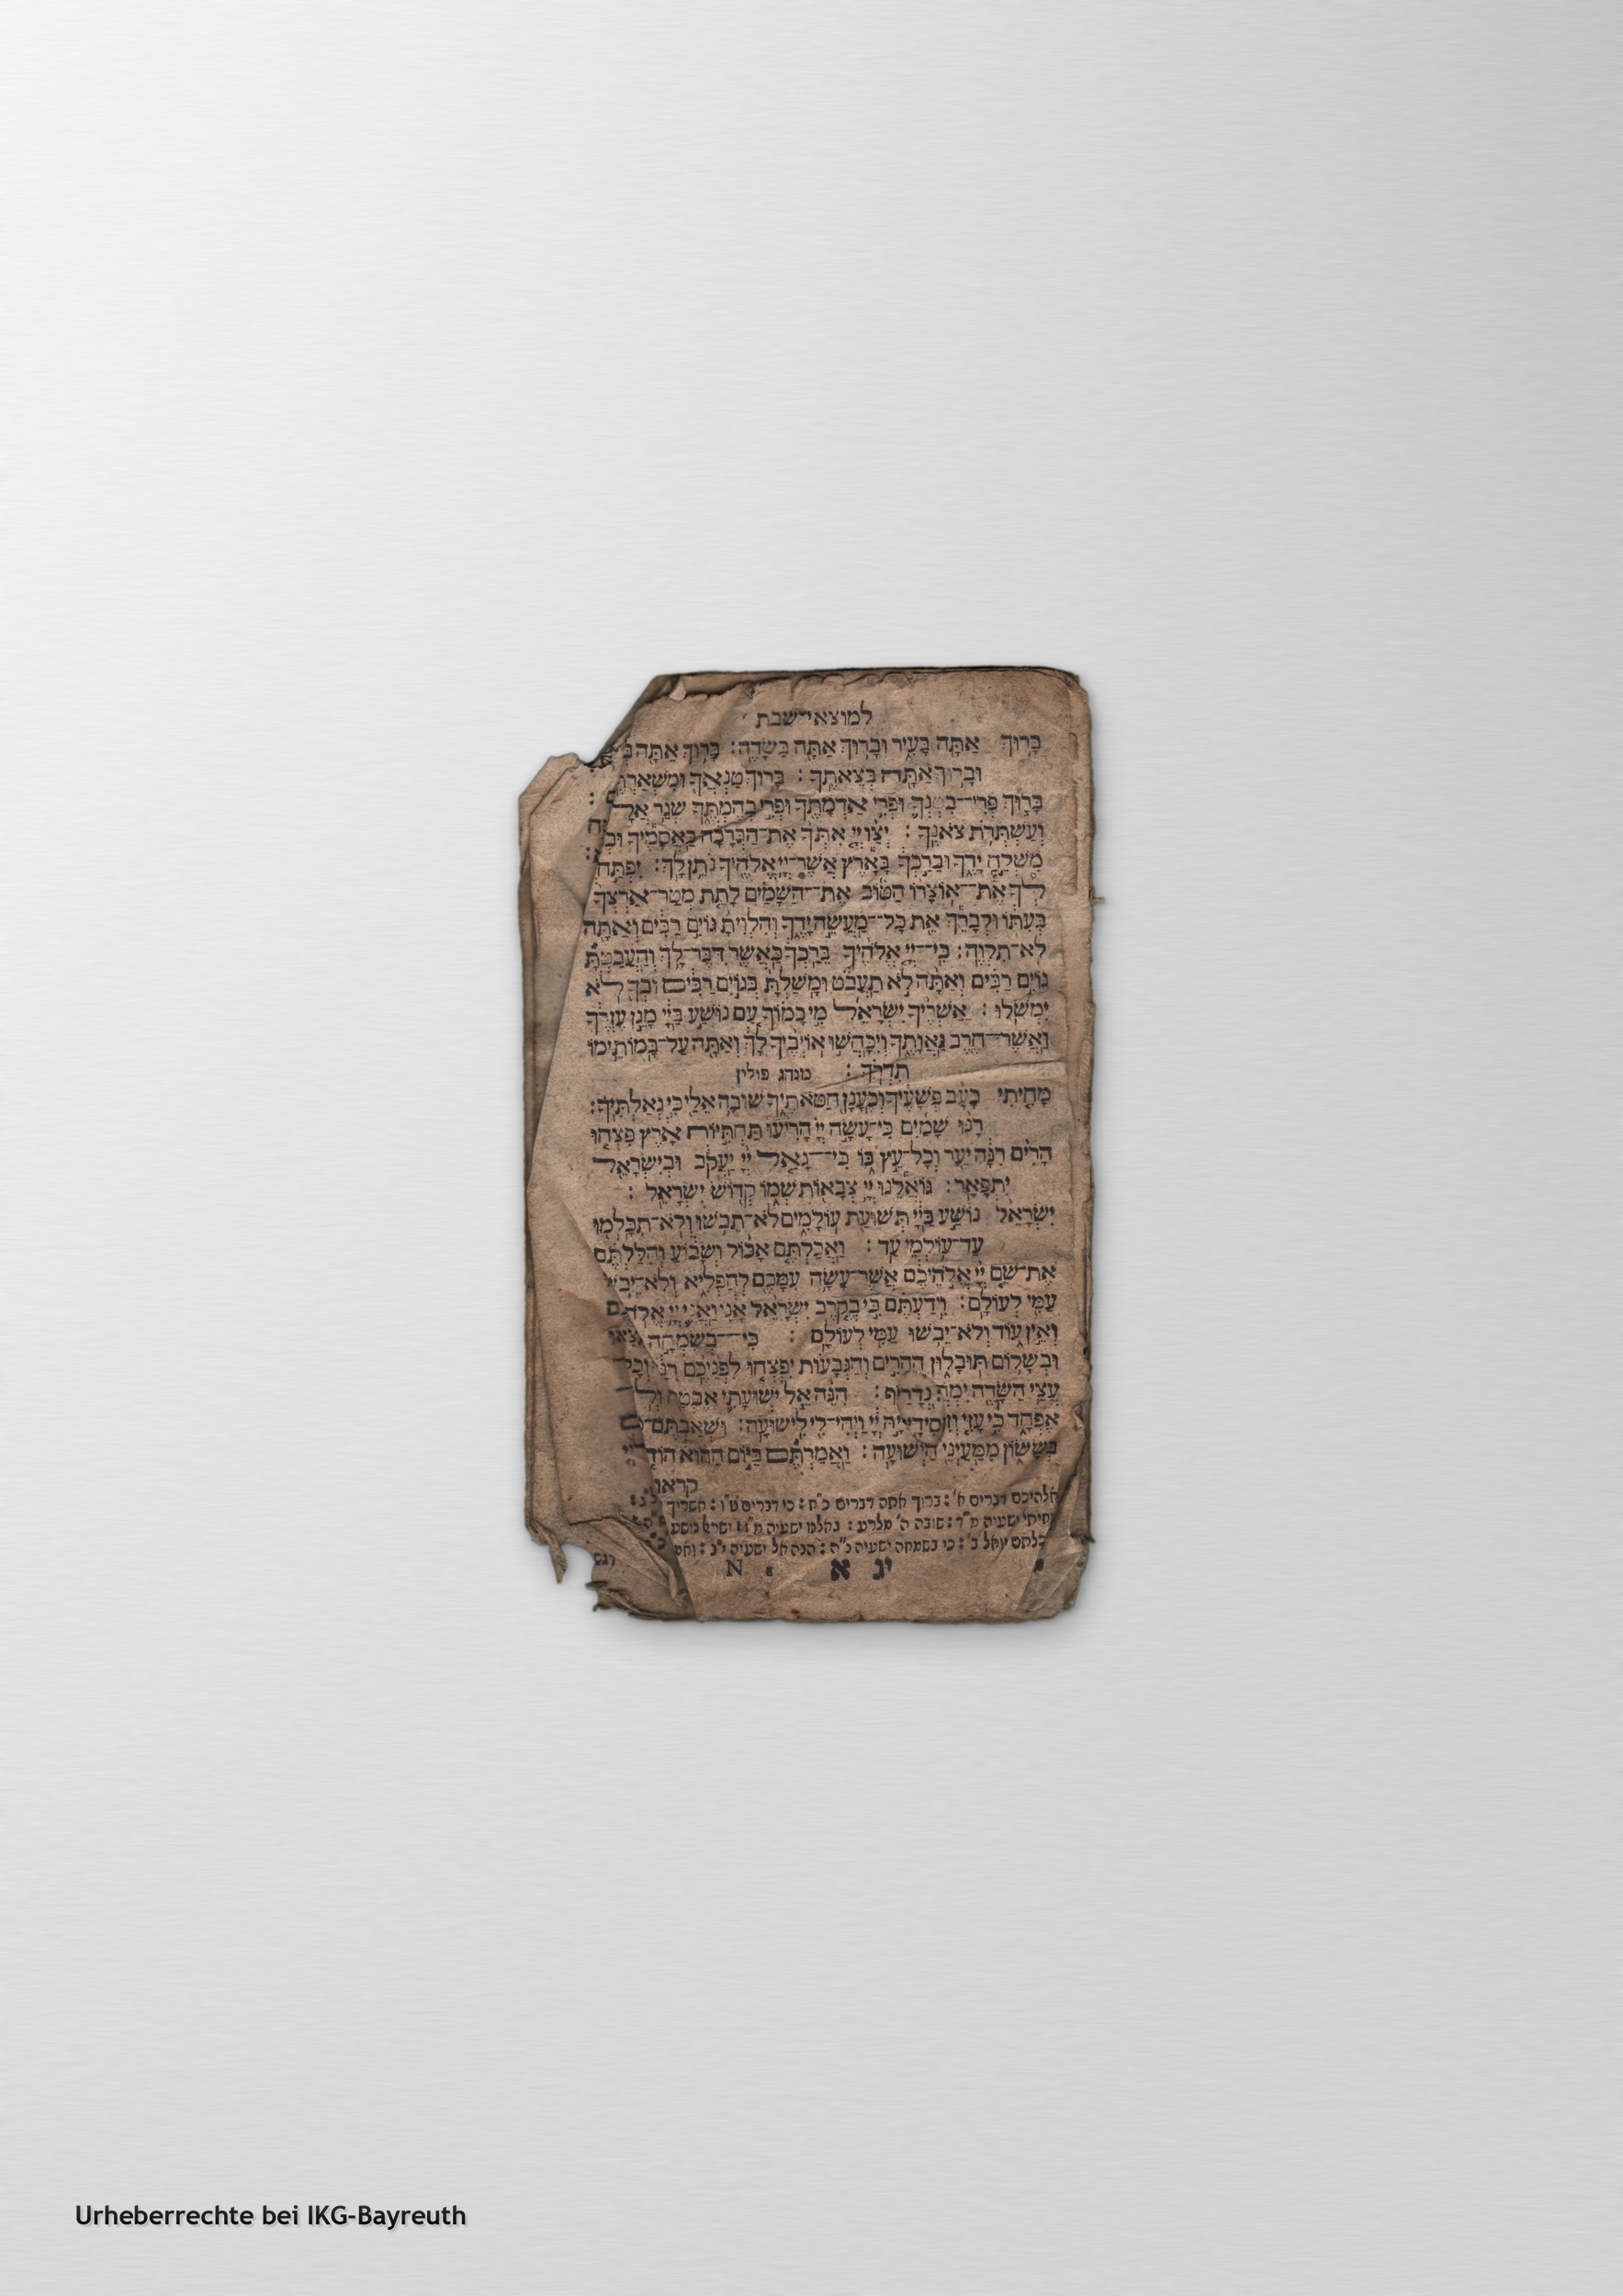 למוצאי־שבת
בָּרוּךְ אַתָּה בָּעִיר וּבָרוּךְ אַתָּה בַּשָּׂדֶה: בָּרוּךְ אַתָּה
וּבָרוּךְ אַתָּה בְּצֵאתֶךָ: בָּרוּךְ טַנְאֲךָ וּמִשְׁאַרְתֶּךָ
בָּרוּךְ פְּרִי־בִטְנְךָ וּפְרִי אַדְמָתְךָ וּפְרִי בְהֶמְתֶּךָ שְׁגַר
וְעַשְׁתְּרֹת צֹאנֶךָ: יְצַו יְיָ אִתְּךָ אֶת־הַבְּרָכָה בַּאֲסָמֶיךָ
מִשְׁלַח יָדֶךָ וּבֵרַכְךָ בָּאָרֶץ אֲשֶׁר־יְיָ אֱלֹהֶיךָ נֹתֵן לָךְ: יִפְתַּח
לְךָ אֶת־אוֹצָרוֹ הַטּוֹב אֶת־הַשָּׁמַיִם לָתֵת מְטַר־אַרְצְךָ
בְּעִתּוֹ וּלְבָרֵךְ אֵת כָּל־מַעֲשֵׂה יָדֶךָ וְהִלְוִיתָ גּוֹיִם רַבִּים וְאַתָּה
לֹא־תִלְוֶה: כִּי־יְיָ אֱלֹהֶיךָ בֵּרַכְךָ כַּאֲשֶׁר דִּבֶּר־לָךְ וְהַעֲבַטְתָּ
גּוֹיִם רַבִּים וְאַתָּה לֹא תַעֲבֹט וּמָשַׁלְתָּ בְּגוֹיִם רַבִּים וּבְךָ לֹא
יִמְשֹׁלוּ: אַשְׁרֶיךָ יִשְׂרָאֵל מִי כָמוֹךָ עַם נוֹשַׁע בַּיְיָ מָגֵן עֶזְרֶךָ
וַאֲשֶׁר־חֶרֶב גַּאֲוָתֶךָ וְיִכָּחֲשׁוּ אוֹיְבֶיךָ לָךְ וְאַתָּה עַל־בָּמוֹתֵימוֹ
תִדְרֹךְ: מנהג פולין
מָחִיתִי כָעָב פְּשָׁעֶיךָ וְכֶעָנָן חַטֹּאתֶיךָ שׁוּבָה אֵלַי כִּי גְאַלְתִּיךָ:
רָנּוּ שָׁמַיִם כִּי־עָשָׂה יְיָ הָרִיעוּ תַּחְתִּיּוֹת אָרֶץ פִּצְחוּ
הָרִים רִנָּה יַעַר וְכָל־עֵץ בּוֹ כִּי־גָאַל יְיָ יַעֲקֹב וּבְיִשְׂרָאֵל
יִתְפָּאָר: גּוֹאֲלֵנוּ יְיָ צְבָאוֹת שְׁמוֹ קְדוֹשׁ יִשְׂרָאֵל:
יִשְׂרָאֵל נוֹשַׁע בַּיְיָ תְּשׁוּעַת עוֹלָמִים לֹא־תֵבֹשׁוּ וְלֹא־תִכָּלְמוּ
עַד־עוֹלְמֵי עַד: וַאֲכַלְתֶּם אָכוֹל וְשָׂבוֹעַ וְהִלַּלְתֶּם
אֶת־שֵׁם יְיָ אֱלֹהֵיכֶם אֲשֶׁר־עָשָׂה עִמָּכֶם לְהַפְלִיא וְלֹא־יֵבֹשׁוּ
עַמִּי לְעוֹלָם: וִידַעְתֶּם כִּי בְקֶרֶב יִשְׂרָאֵל אָנִי וַאֲנִי יְיָ
וְאֵין עוֹד וְלֹא־יֵבֹשׁוּ עַמִּי לְעוֹלָם: כִּי־בְשִׂמְחָה
וּבְשָׁלוֹם תּוּבָלוּן הֶהָרִים וְהַגְּבָעוֹת יִפְצְחוּ לִפְנֵיכֶם רִנָּה וְכָל
עֲצֵי הַשָּׂדֶה יִמְחֲאוּ כָף: הִנֵּה אֵל יְשׁוּעָתִי אֶבְטַח וְלֹא
אֶפְחָד כִּי עָזִּי וְזִמְרָת יָהּ יְיָ וַיְהִי־לִי לִישׁוּעָה: וּשְׁאַבְתֶּם
בְּשָׂשׂוֹן מִמַּעַיְנֵי הַיְשׁוּעָה: וַאֲמַרְתֶּם בַּיּוֹם הַהוּא הוֹדוּ
קראו
אלהיכם דברים א': ברוך אתה דברים כ"ח: כי דברים ט"ו: אשריך
ישעיה מ"ד: שובה ה' מלרע: גואלנו ישעיה מ"ז: ישראל נושע
יואל ב': כי בשמחה ישעיה נ"ה: הנה אל ישעיה י"ב:
יג א N
Urheberrechte bei IKG-Bayreuth